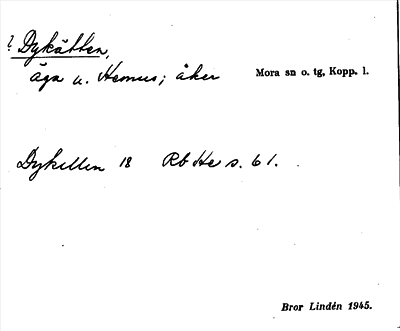 ? Dykätten,
äga u. Hemus; åker
Mora sn o. tg, Kopp. l.
Dykellen 18 Rb He s. 61.
Bror Lindén 1945.